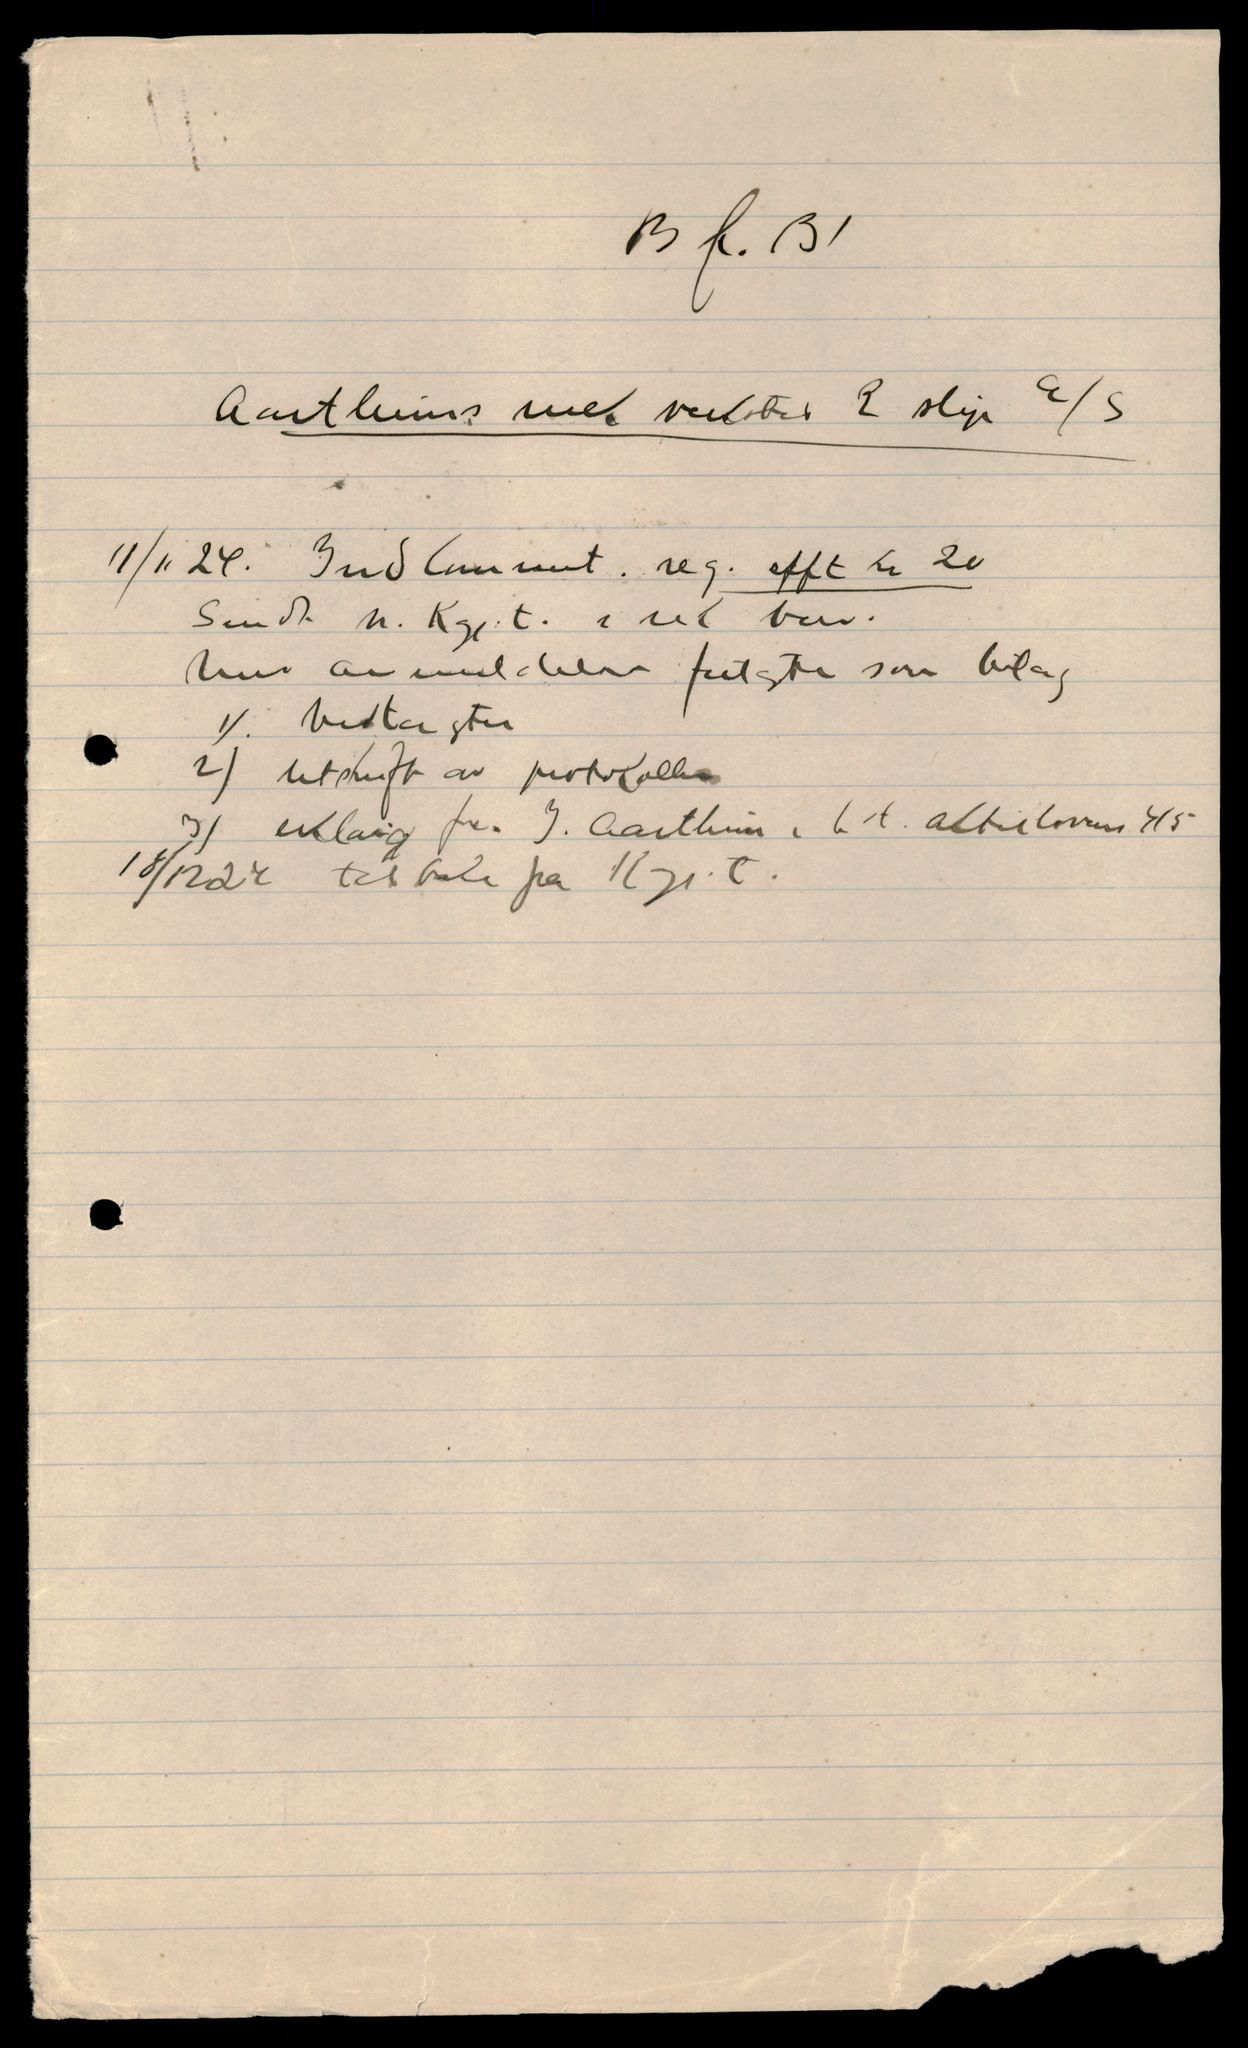 B f. B1
Aartheims mek verksted & slip A/S
11/11 24. Indkommet. reg. efft kr 20
Sendt n. Kgj.t.
anmeldelsen som bilag
1). Vedtægter
2) utskrift av protokollen
3) erklæring fra J. Aartheim i h.t. aktielovens 4/5
18/12 24 tilbake fra Kgj.t.